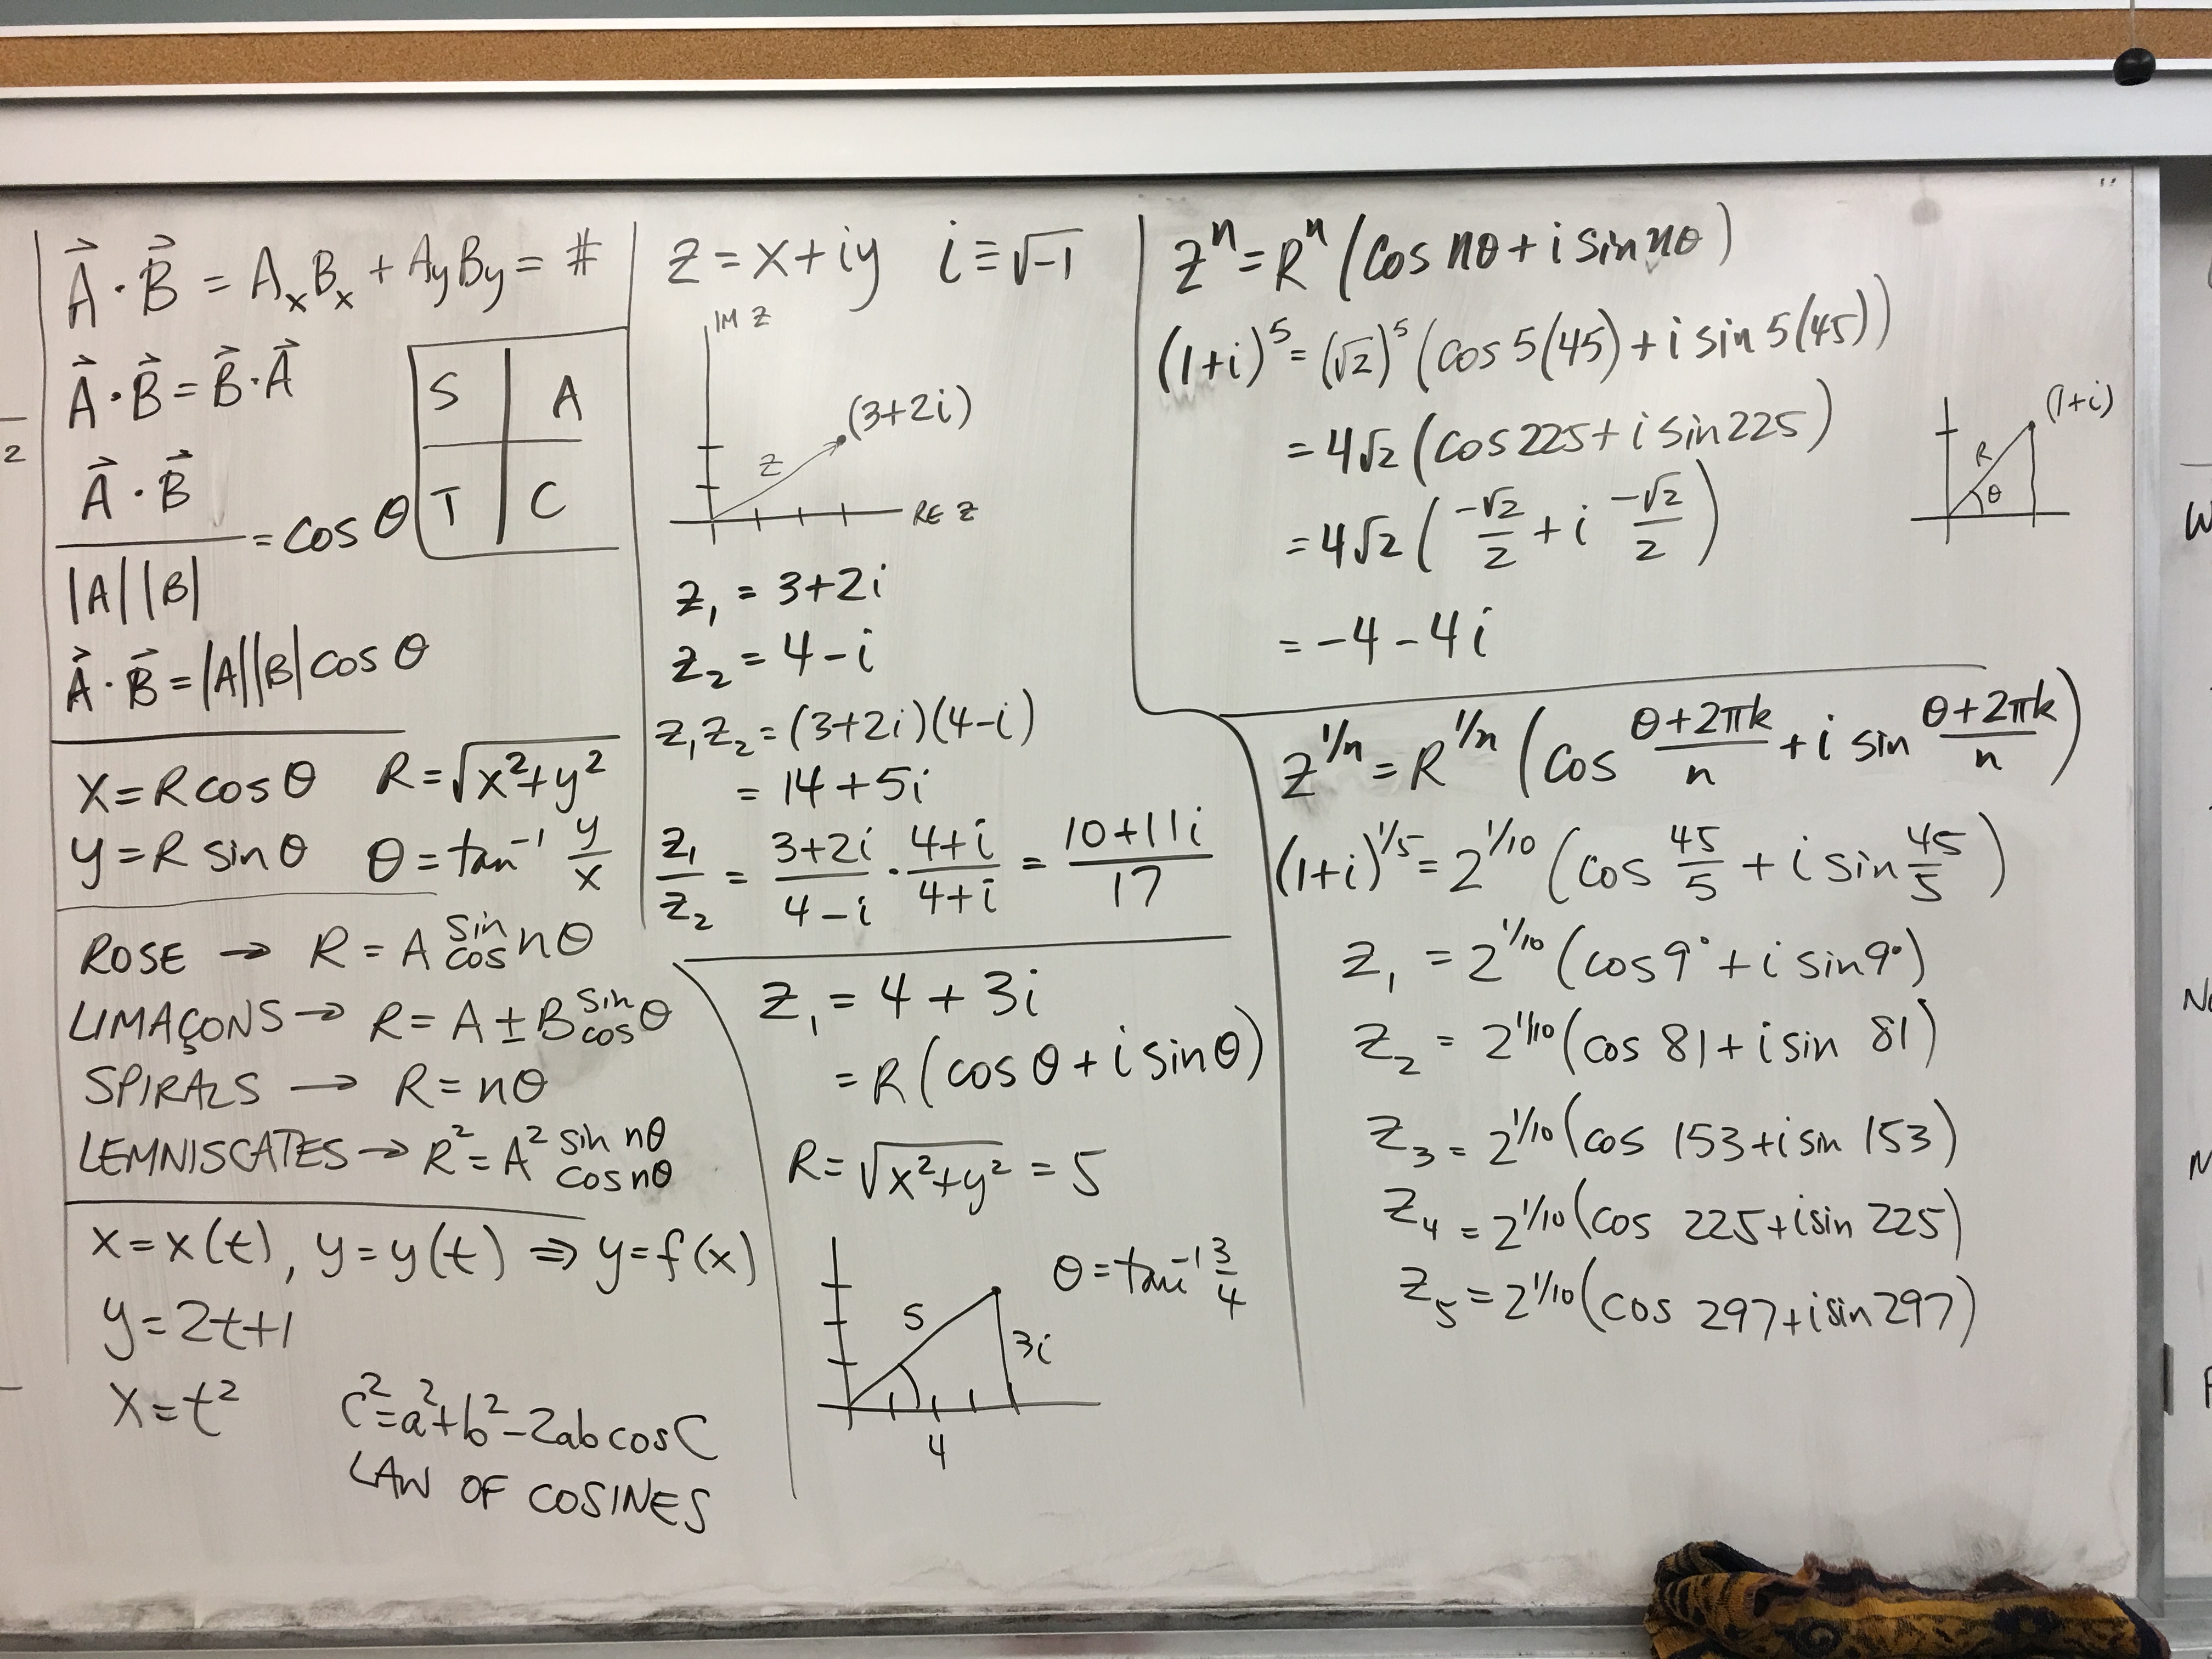 A⃗ · B⃗ = AₓBₓ + AyBy = #
A⃗ · B⃗ = B⃗ · A⃗
S A
T C
A⃗ · B⃗ / |A||B| = cos θ
A⃗ · B⃗ = |A||B| cos θ
x = R cos θ R = √(x²+y²)
y = R sin θ θ = tan⁻¹ y/x
ROSE → R = A sin cos nθ
LIMAÇONS → R = A ± B sin cos θ
SPIRALS → R = nθ
LEMNISCATES → R² = A² sin nθ cos nθ
x = x(t), y = y(t) ⇒ y = f(x)
y = 2t+1
x = t²
c² = a² + b² - 2ab cos C
LAW OF COSINES
z = x + iy i ≡ √-1
IM z
(3+2i)
z
RE z
z₁ = 3+2i
z₂ = 4-i
z₁z₂ = (3+2i)(4-i)
= 14+5i
z₁/z₂ = 3+2i/4-i · 4+i/4+i = 10+11i/17
z₁ = 4+3i
= R(cos θ + i sin θ)
R = √(x²+y²) = 5
θ = tan⁻¹ 3/4
5
3i
4
zⁿ = Rⁿ (cos nθ + i sin nθ)
(1+i)⁵ = (√2)⁵ (cos 5(45) + i sin 5(45))
= 4√2 (cos 225 + i sin 225)
= 4√2 (-√2/2 + i -√2/2)
= -4 - 4i
(1+i)
R
θ
z^1/n = R^1/n (cos θ+2πk/n + i sin θ+2πk/n)
(1+i)^1/5 = 2^1/10 (cos 45/5 + i sin 45/5)
z₁ = 2^1/10 (cos 9° + i sin 9°)
z₂ = 2^1/10 (cos 81 + i sin 81)
z₃ = 2^1/10 (cos 153 + i sin 153)
z₄ = 2^1/10 (cos 225 + i sin 225)
z₅ = 2^1/10 (cos 297 + i sin 297)
2